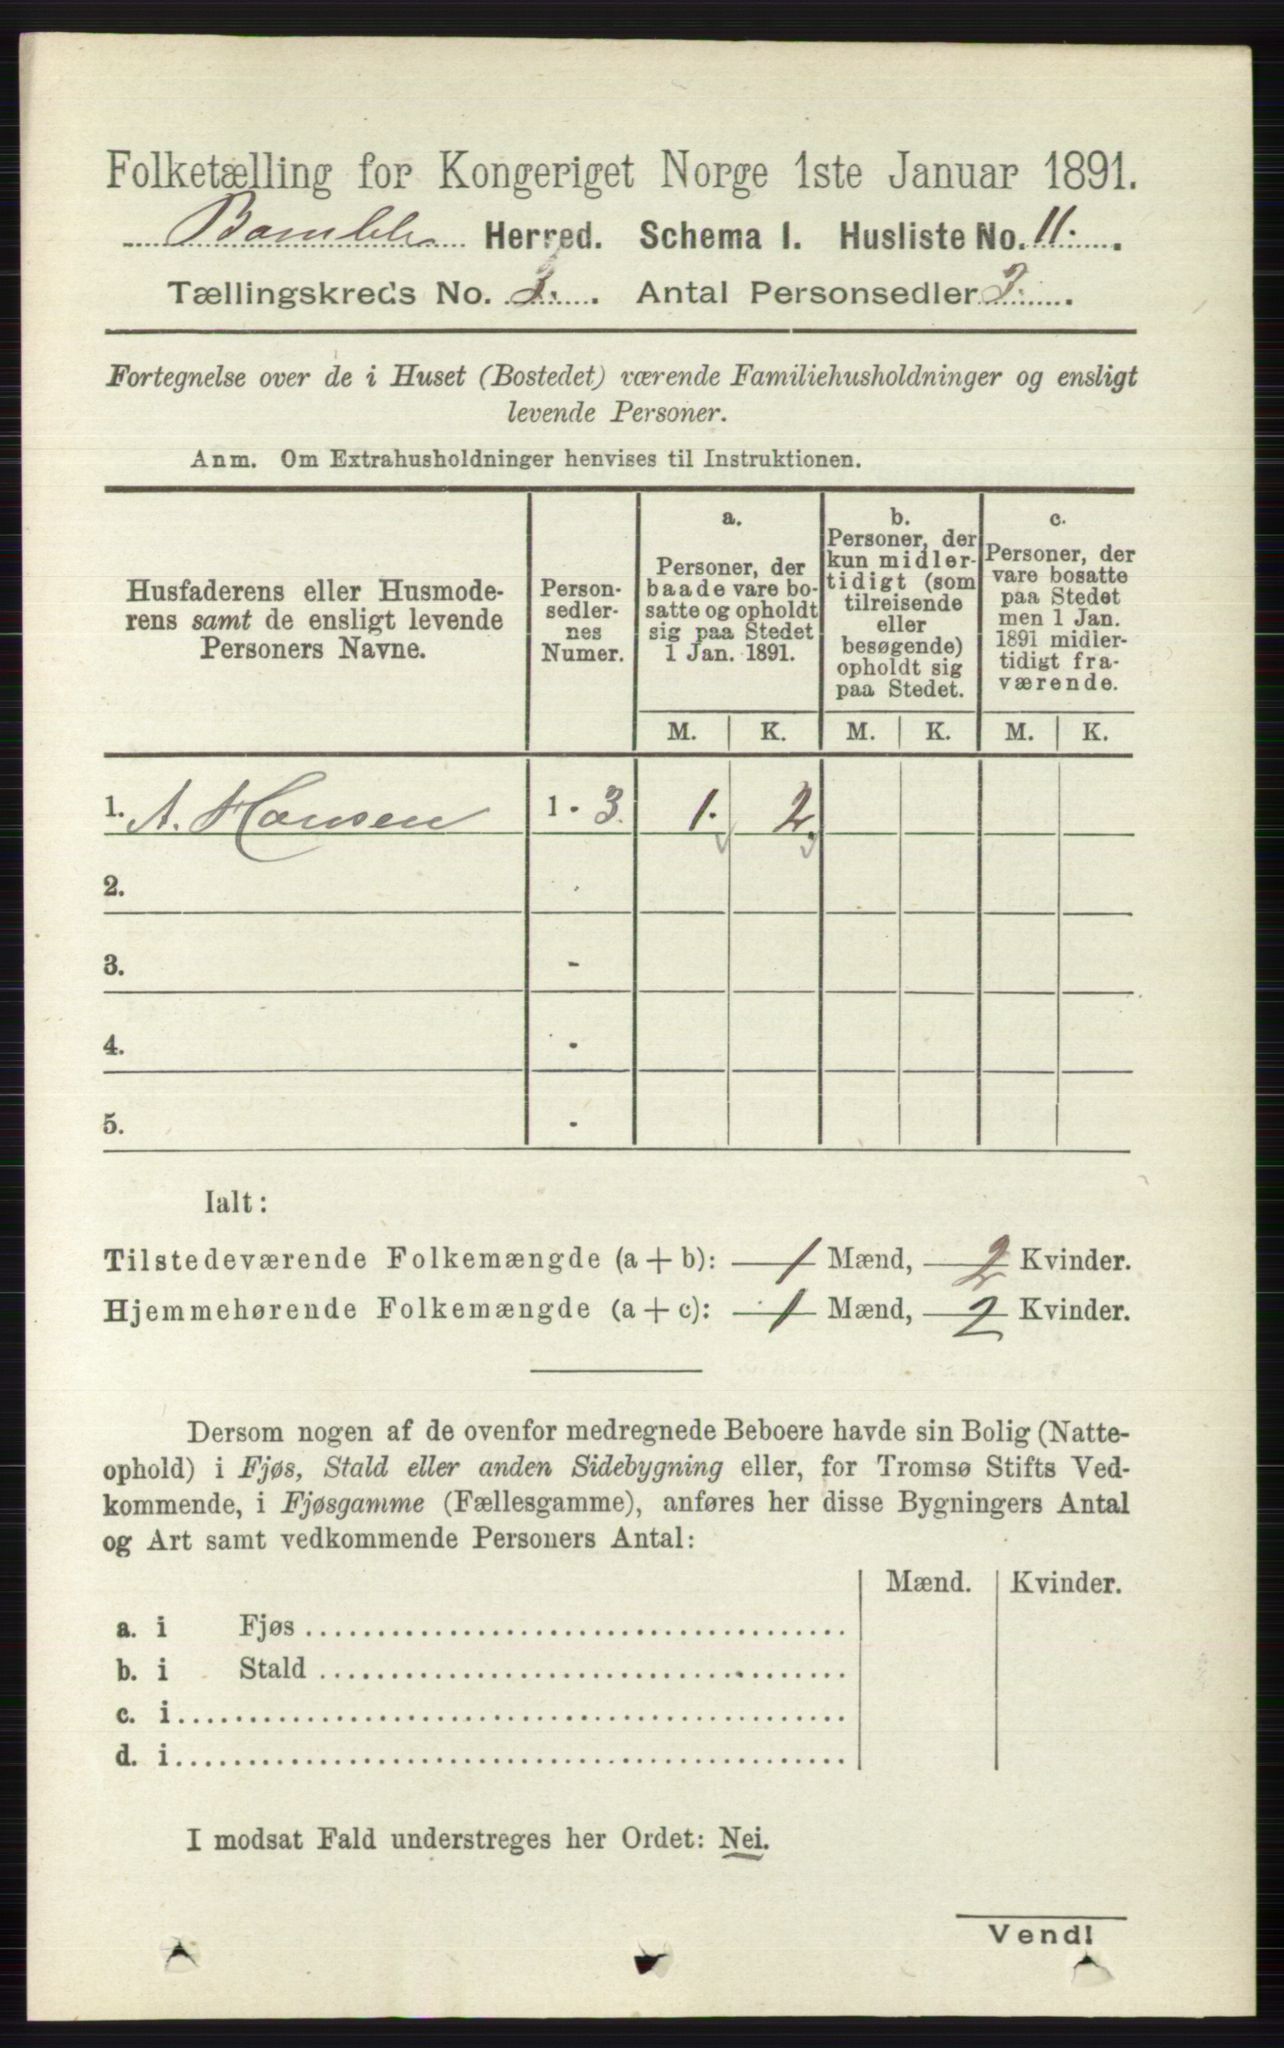 Folketælling for Kongeriget Norge 1ste Januar 1891.
Bamble Herred. Schema I. Husliste No. 11.
Tællingskreds No. 3. Antal Personsedler 3.
Fortegnelse over de i Huset (Bostedet) værende Familiehusholdninger og ensligt
levende Personer.
Anm. Om Extrahusholdninger henvises til Instruktionen.
Husfaderens eller Husmode-
rens samt de ensligt levende
Personers Navne.
Person-
sedler-
nes
Numer.
a.
Personer, der
baade vare bo-
satte og opholdt
sig paa Stedet
1 Jan. 1891.
b.
Personer, der
kun midler-
tidigt (som
tilreisende
eller
besøgende)
opholdt sig
paa Stedet.
c.
Personer, der
vare bosatte
paa Stedet
men 1 Jan.
1891 midler-
tidigt fra-
værende.
M. K. M. K. M. K.
1. A. Hansen 1 - 3. 1. 2.
2.
3. -
4. -
5. -
Ialt:
Tilstedeværende Folkemængde (a + b): 1 Mænd, 2 Kvinder.
Hjemmehørende Folkemængde (a + c): 1 Mænd, 2 Kvinder.
Dersom nogen af de ovenfor medregnede Beboere havde sin Bolig (Natte-
ophold) i Fjøs, Stald eller anden Sidebygning eller, for Tromsø Stifts Ved-
kommende, i Fjøsgamme (Fællesgamme), anføres her disse Bygningers Antal
og Art samt vedkommende Personers Antal:
Mænd. Kvinder.
a. i Fjøs
b. i Stald
c. i
d. i
I modsat Fald understreges her Ordet: Nei.
Vend!